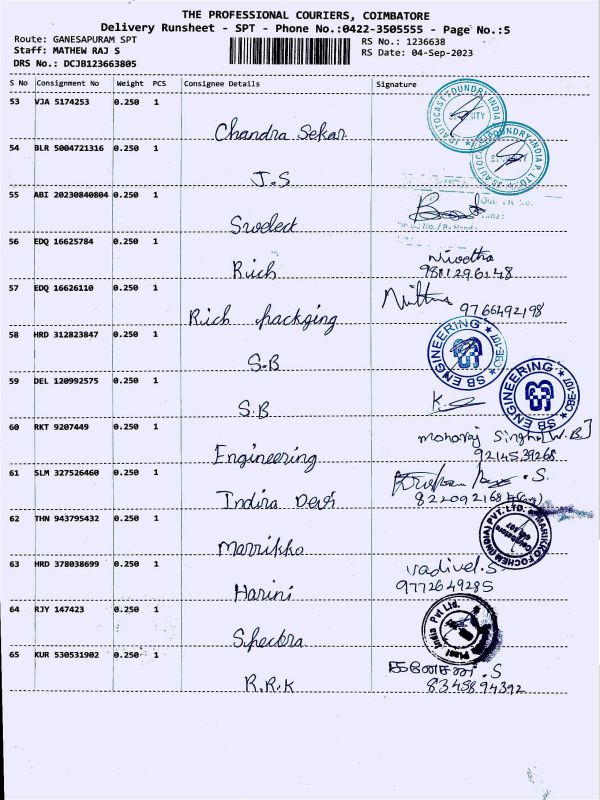 THE PROFESSIONAL COURIERS, COIMBATORE
Delivery Runsheet - SPT - Phone No.:0422-3505555 - Page No.:5
Route: GANESAPURAM SPT
RS No.: 1236638
Staff: MATHEW RAJ S
RS Date: 04-Sep-2023
DRS No.: DCJB123663805
S No Consignment No Weight PCS Consignee Details Signature
53 VJA 5174253 0.250 1
Chandra Sekar
JS AUTOCAST FOUNDRY INDIA
54 BLR 5004721316 0.250 1
J.S
JS AUTOCAST FOUNDRY INDIA P. LTD
SECURITY
55 ABI 20230840804 0.250 1
Swelect
56 EDQ 16625784 0.250 1
Rich
57 EDQ 16626110 0.250 1
Rich packging
9766492198
58 HRD 312823847 0.250 1
S.B
SB ENGINEERING CBE-107
59 DEL 120992575 0.250 1
S.B
SB ENGINEERING CBE-107
60 RKT 9207449 0.250 1
Engineering
moharaj Singh [W.B]
9214539268
61 SLM 327526460 0.250 1
Indira Devi
62 THN 943795432 0.250 1
Marrikko
63 HRD 378038699 0.250 1
Harini
vadivel.S
9772649285
64 RJY 147423 0.250 1
Spectra
India Pvt Ltd.
65 KUR 530531902 0.250 1
R.R.K
கணேசன்.S
8345894392